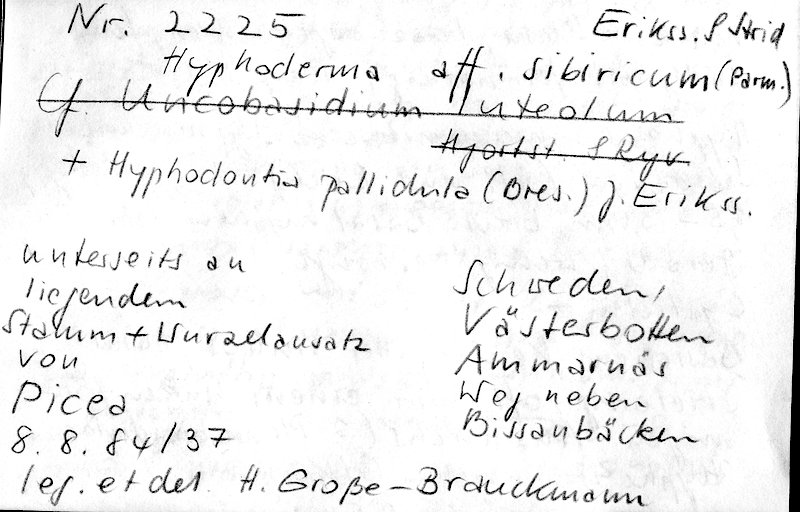 Nr. 2225
Erikss. & Strid
Hyphoderma aff. sibiricum (Parm.)
Cf. Uncobasidium luteolum
Hjortst. & Ryv
+ Hyphodontia pallidula (Bres.) J. Erikss.
unterseits an
liegendem
Stamm + Wurzelansatz
von
Picea
8. 8. 84/37
Schweden,
Västerbotten
Ammarnäs
Weg neben
Bissanbäcken
leg. et det. H. Große-Brauckmann